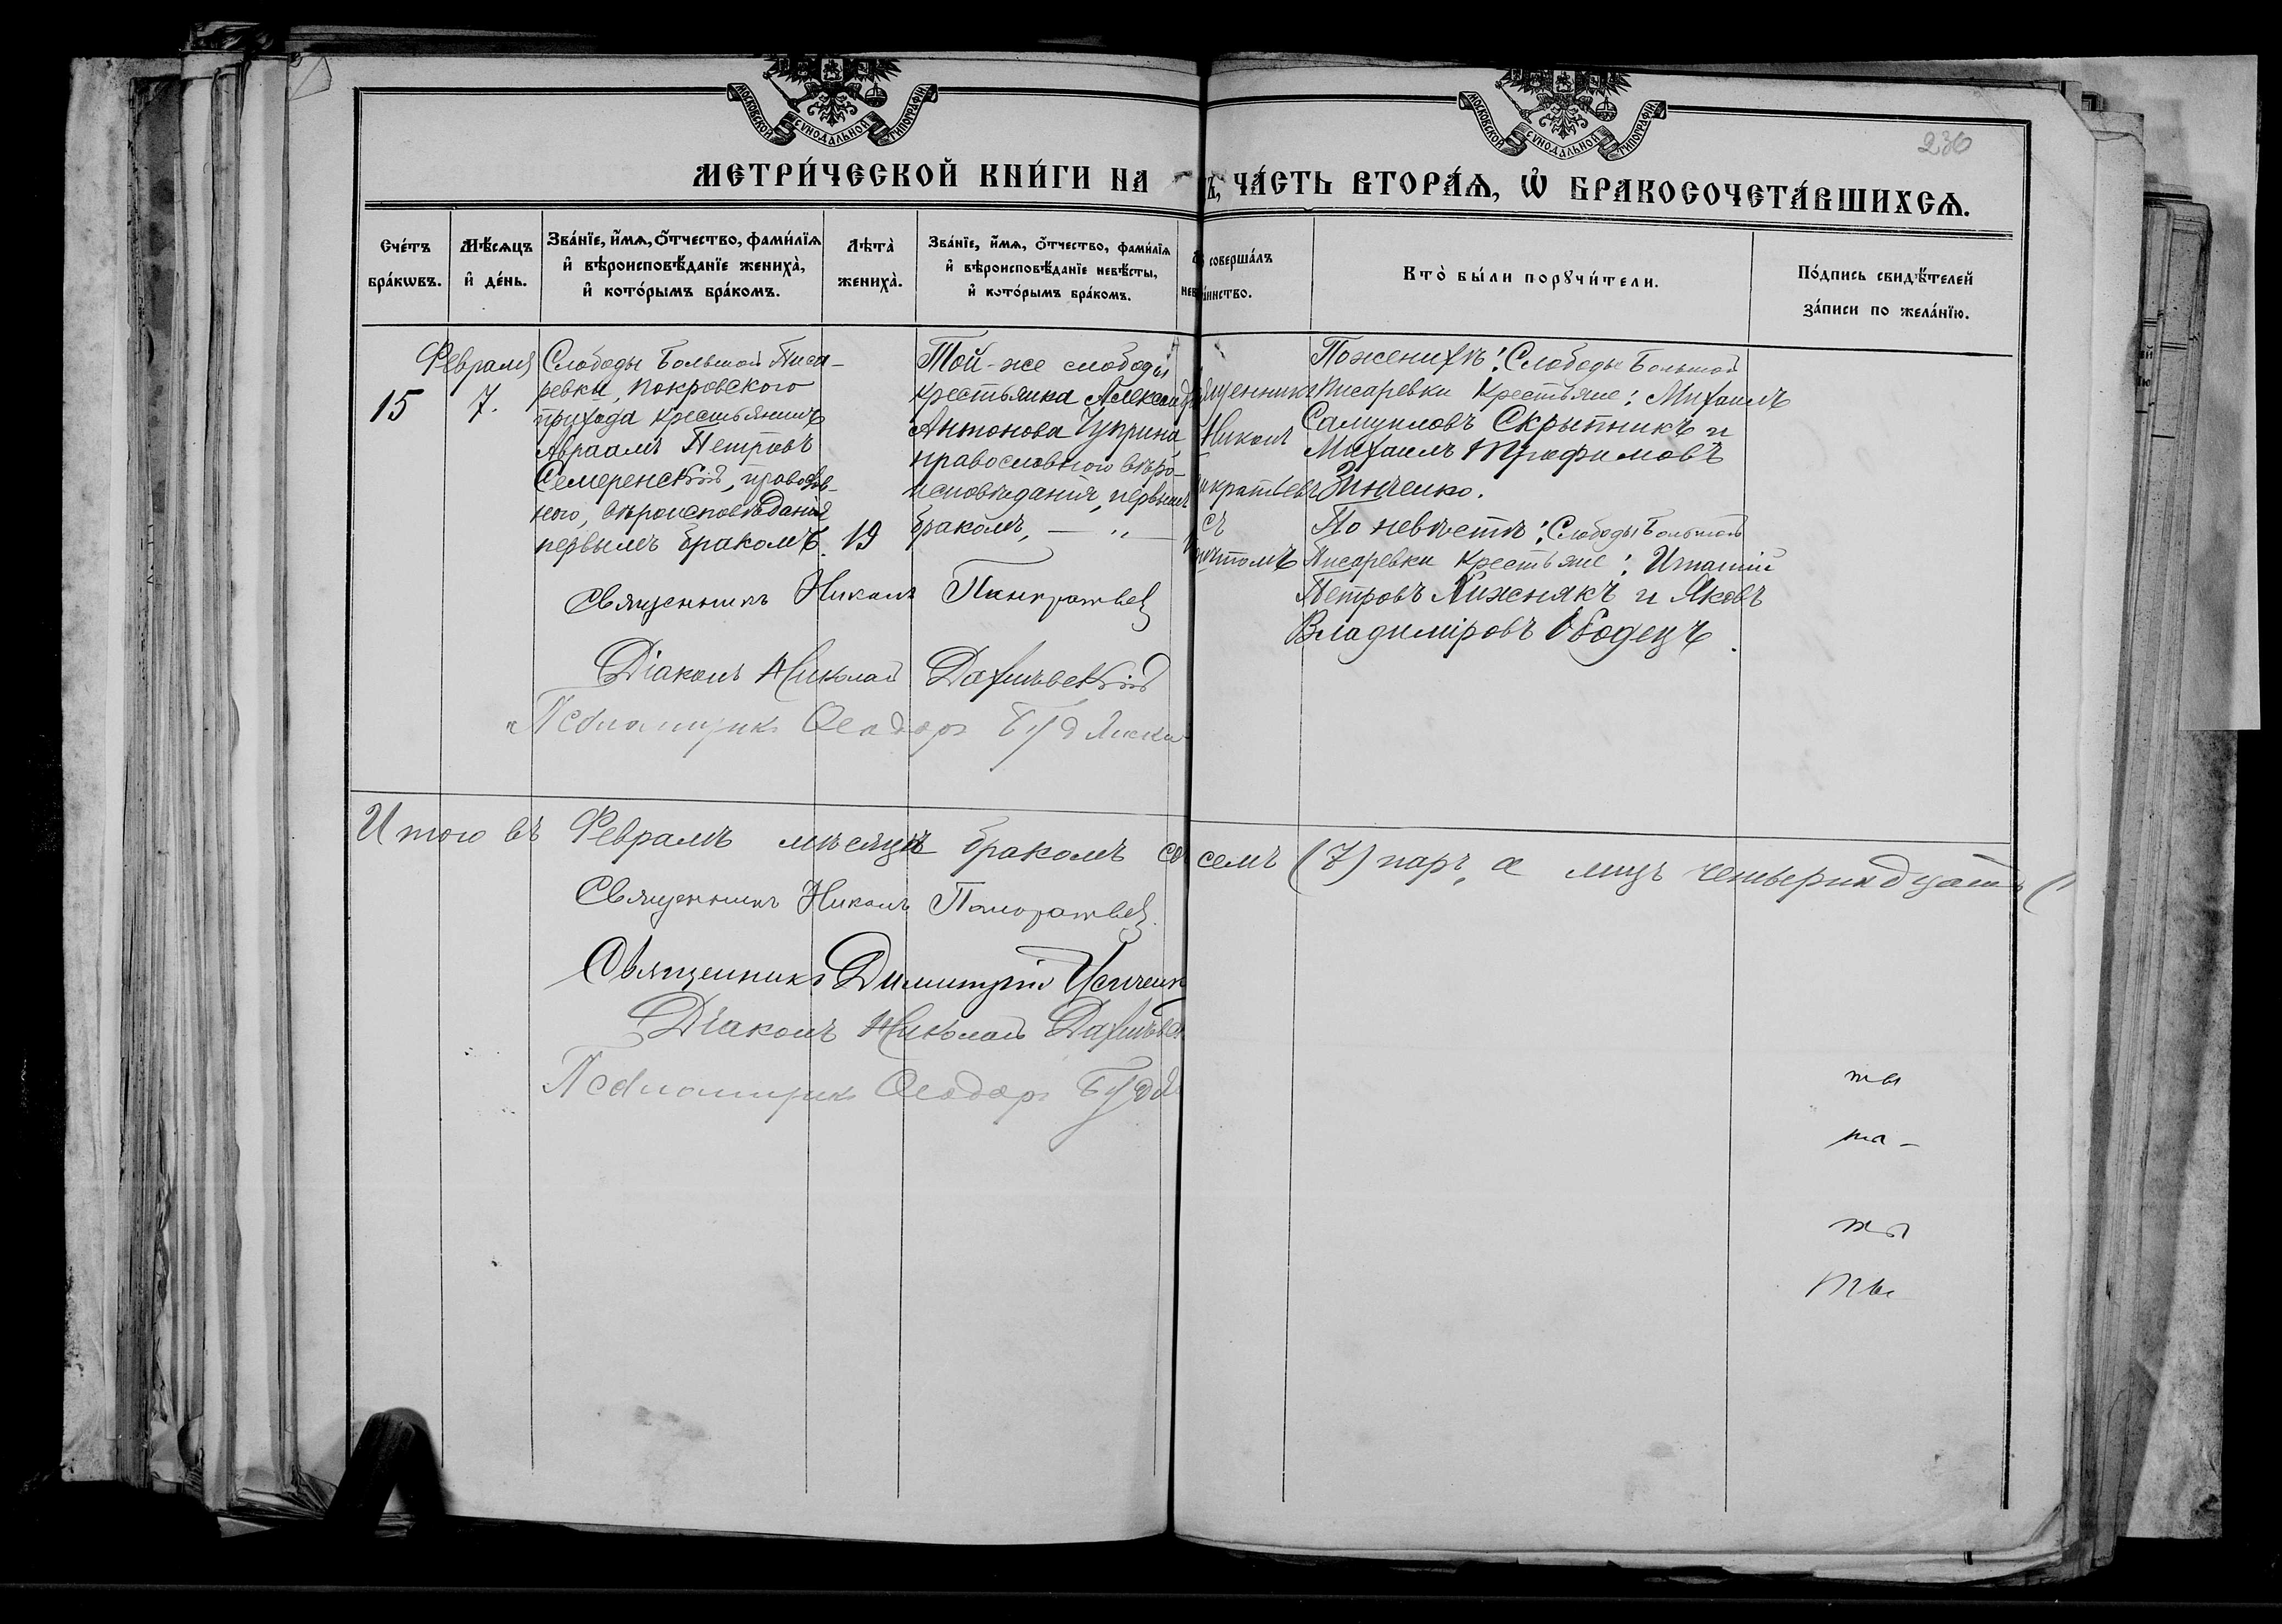 МОСКОВСКОЙ СУНОДАЛЬНОЙ ТИПОГРАФІИ
МОСКОВСКОЙ СУНОДАЛЬНОЙ ТИПОГРАФІИ
236
МЕТРИ́ЧЕСКОЙ КНИ́ГИ НА
ЧА́СТЬ ВТОРА́Ѧ, Ѽ БРАКОСОЧЕТА́ВШИХСѦ.
Сче́тъ
бра́кѡвъ.
Мѣ́сѧцъ
и҆ де́нь.
Зва́нїе, и҆́мѧ, ѻ҆́тчество, фами́лїѧ
и҆ вѣроисповѣ́данїе жениха̀,
и҆ кото́рымъ бра́комъ.
Лѣта̀
жениха̀.
Зва́нїе, и҆́мѧ, ѻ҆́тчество, фами́лїѧ
и҆ вѣроисповѣ́данїе невѣ́сты,
и҆ кото́рымъ бра́комъ.
нев
соверша́лъ
и́нство.
Кто̀ бы́ли порꙋчи́тели.
По́дпись свидѣ́телей
за́писи по жела́нїю.
15
Февраля
7.
Слободы Большой Писа-
ревки, Покровского
прихода крестьянинъ
Авраамъ Петровъ
Семеренскій, православ-
ного, вѣроисповѣданія
первымъ бракомъ.
19
Той-же слободы
крестьянка Александра
Антонова Чуприна
православного вѣро-
исповѣданія, первымъ
бракомъ, — „ —
щенникъ
Никонъ
нкратьевъ
съ
причтомъ
По женихѣ: Слободы Большой
Писаревки крестьяне: Михаилъ
Самуиловъ Скрыпникъ и
Михаилъ Трофимовъ
Зинченко.
По невѣстѣ: Слободы Большой
Писаревки крестьяне: Игнатій
Петровъ Лижнякъ и Яковъ
Владиміровъ Ободецъ.
Священникъ Никонъ Панкратьев
Діаконъ Николай Дахнѣвскій
Псаломщикъ Ѳеодоръ
Итого въ Февралѣ мѣсяцѣ бракомъ со
семь (7) паръ, а лицъ четырнадцать (
Священникъ Никонъ Панкратьев
Священникъ Димитрій Исиченк
Діаконъ Николай Дахнѣвск
Псаломщикъ Ѳеодоръ
ты
та-
ты
ты